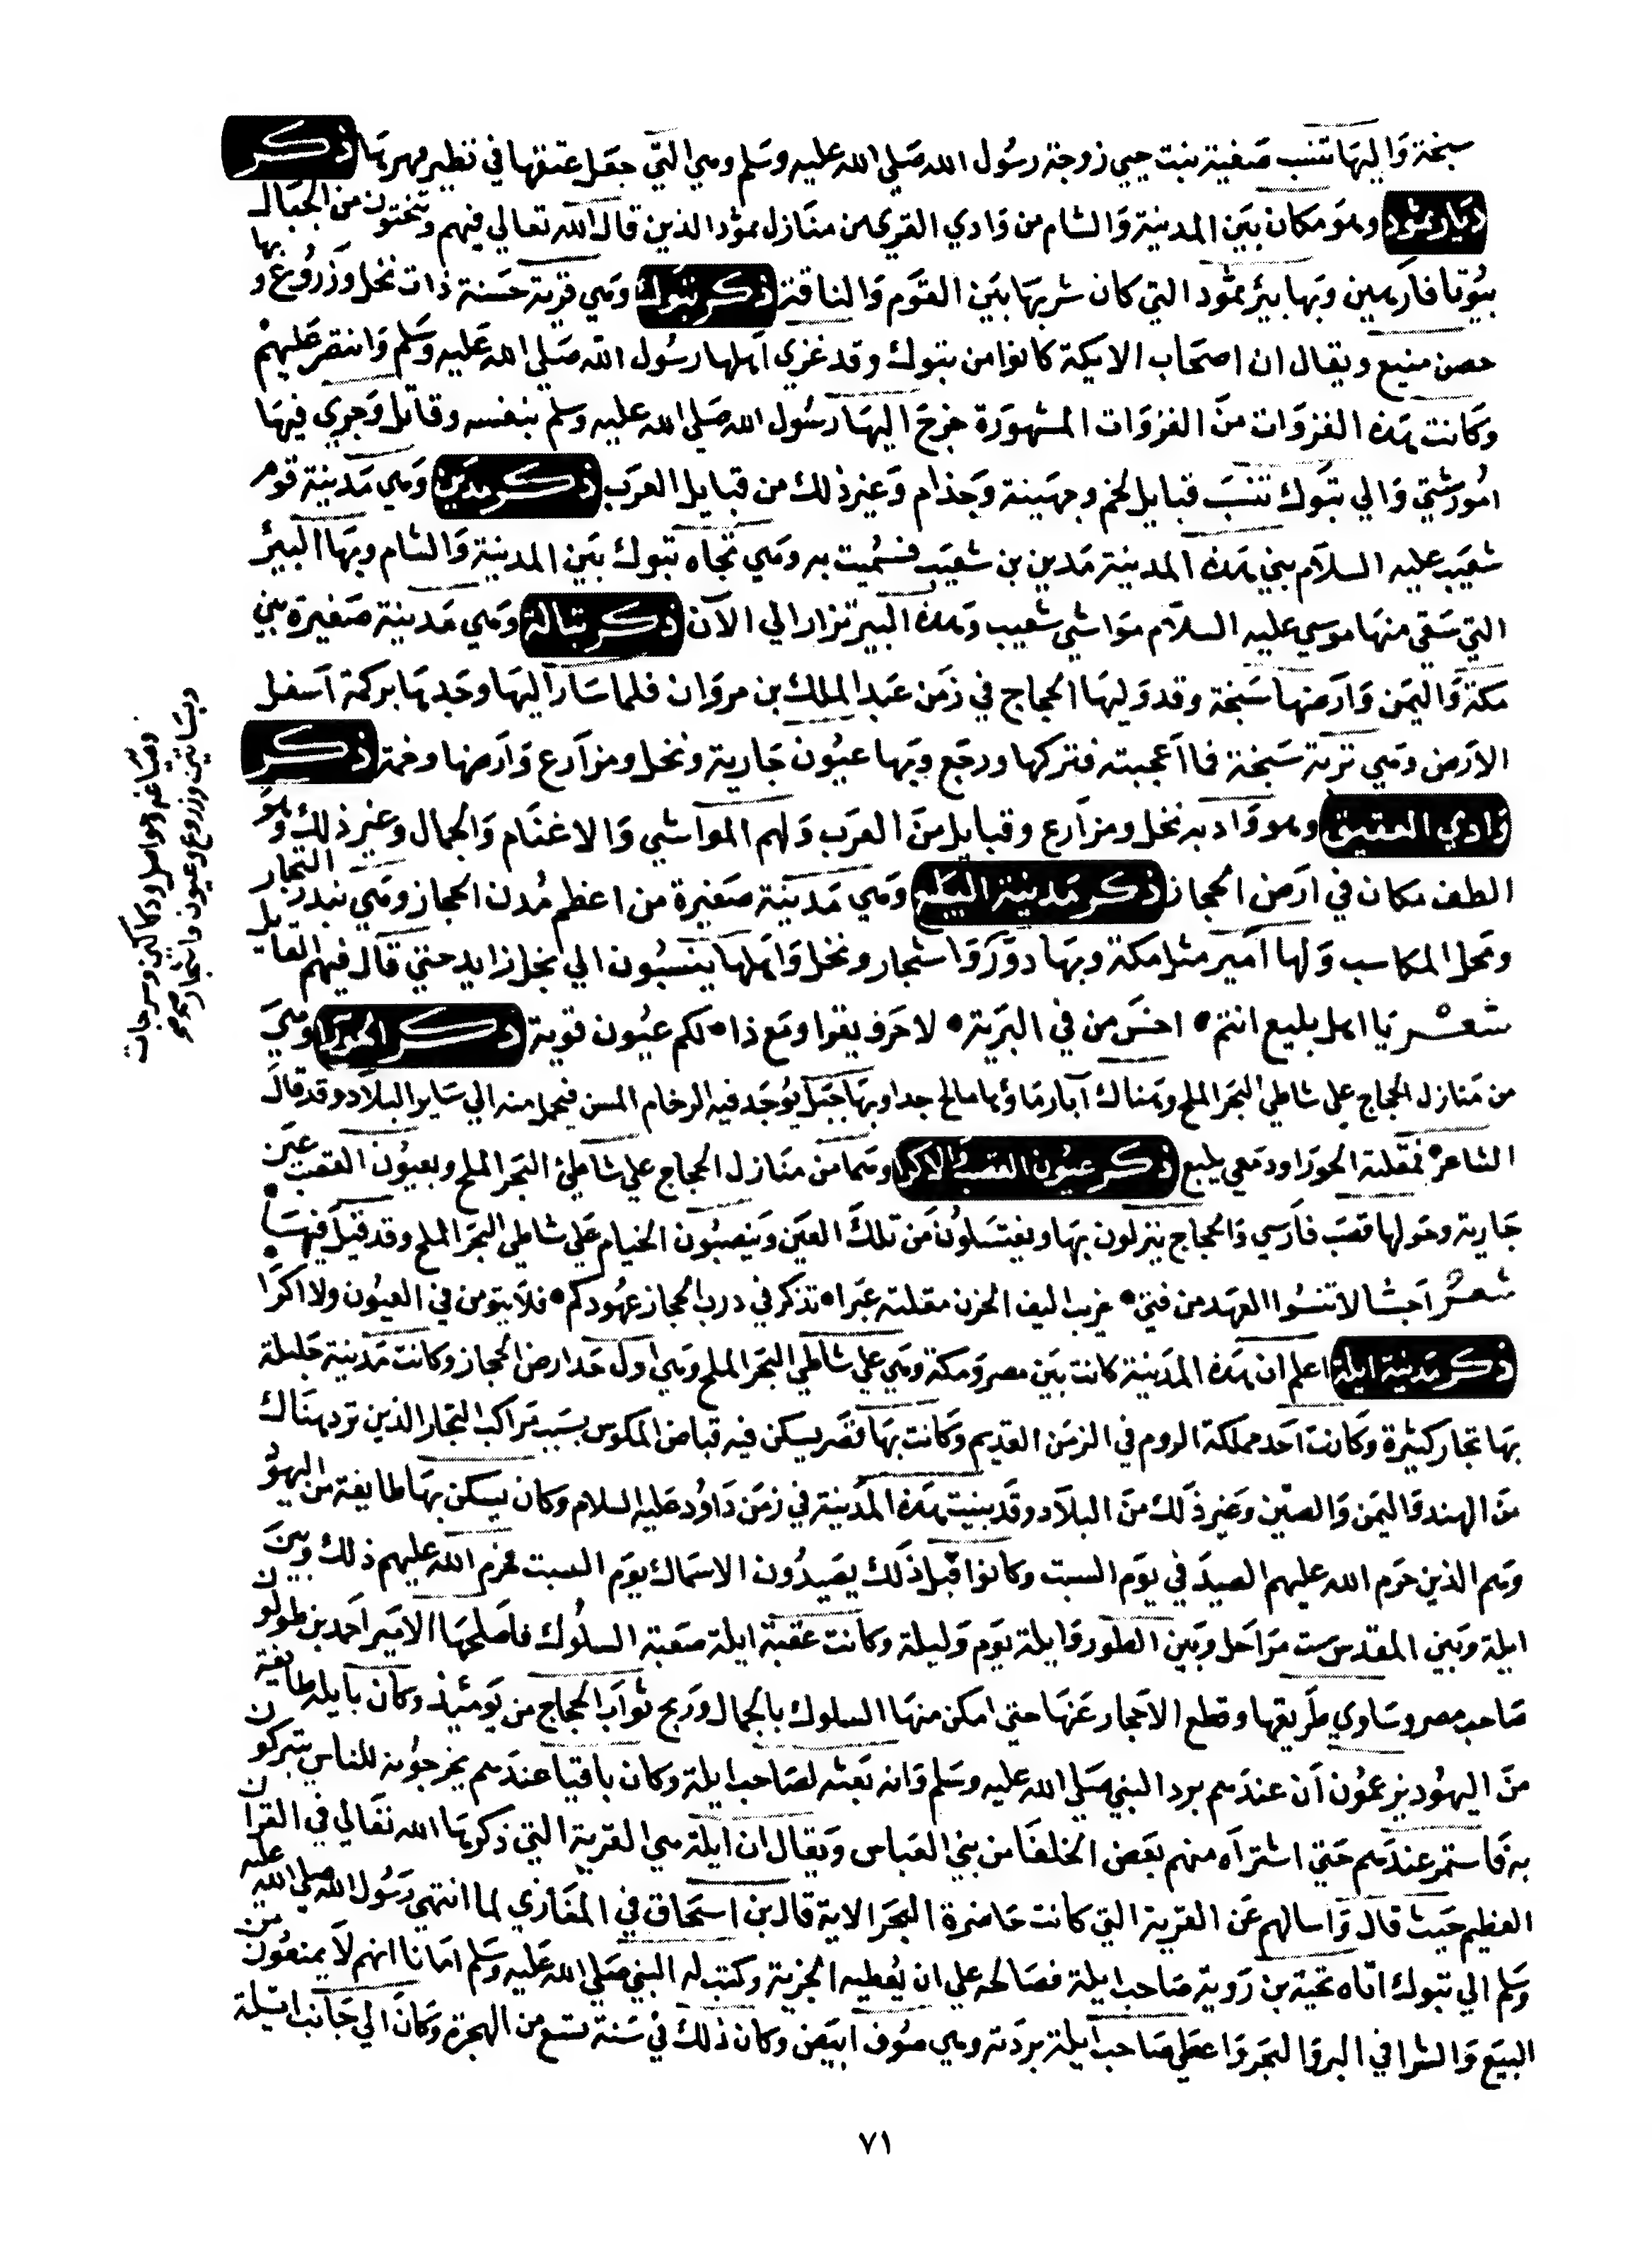 سبخة واليها تنسب صفية بنت حيي زوجة رسول الله صلي الله عليه وسلم وهي التي جعل عتقها في نظير مهرها ذكر
ديار ثمود وهو مكان بين المدينة والشام من وادي القري من منازل ثمود الذين قال الله تعالي فيهم وتنحتون من الجبال
بيوتا فارهين وبها بئر ثمود التي كان شربها بين القوم والناقة ذكر تبوك وهي قرية حسنة ذات نخل وزروع و بها
حصن منيع ويقال ان اصحاب الايكة كانوا من تبوك وقد غزي اهلها رسول الله صلي الله عليه وسلم وانتصر عليهم
وكانت هذه الغزوات من الغزوات المشهورة خرج اليها رسول الله صلي الله عليه وسلم بنفسه وقاتل وجري فيها
امور شتي والي تبوك تنسب قبايل لخم وجهينة وجذام وغير ذلك من قبايل العرب ذكر مدين وهي مدينة قوم
شعيب عليه السلام بني هذه المدينة مدين بن شعيب فسميت به وهي تجاه تبوك بين المدينة والشام وبها البئر
التي سقي منها موسي عليه السلام مواشي شعيب وهذه البير تزار الي الآن ذكر تبالة وهي مدينة صغيرة بين
مكة واليمن وارضها سبخة وقد وليها الحجاج في زمن عبد الملك بن مروان فلما سار اليها وجدها بركة اسفل
الارض وهي تربة سبخة فما اعجبته فتركها ورجع وبها عيون جارية ونخل ومزارع وارضها وخمة ذكر
وادي العقيق وهو واد به نخل ومزارع وقبايل من العرب ولهم المواشي والاغنام والجمال وغير ذلك وهو
الطف مكان في ارض الحجاز ذكر مدينة الينبع وهي مدينة صغيرة من اعظم مدن الحجاز وهي بندر التجار
ومحل المكاسب ولها امير مثل مكة وبها دور واشجار ونخل واهلها ينسبون الي بخل زايد حتي قال فيهم القايل
شعر يا اهل ينبع انتم • احسن من في البرية • لا حرف يقرا ومع ذا • لكم عيون قوية ذكر الحورا وهي
من منازل الحجاج علي شاطي البحر الملح وهناك آبار ماؤها مالح جدا وبها جبل يوجد فيه الرخام المسن فيحمل منه الي ساير البلاد وقد قال
الشاعر • فمقلته الحورا ودمعي ينبع ذكر عيون القصب والاكرا وهما من منازل الحجاج علي شاطئ البحر الملح وبعيون القصب عين
جارية وحولها قصب فارسي والحجاج ينزلون بها ويغتسلون من تلك العين وينصبون الخيام علي شاطي البحر الملح وقد قيل فيها •
شعر احبتنا لا تنسوا العهد من فتي • غريب اليف الحزن مقلته عبرا • تذكر في درب الحجاز عهودكم • فلا يتومن في العيون ولا اكرا
ذكر مدينة ايلة اعلم ان هذه المدينة كانت بين مصر ومكة وهي علي شاطي البحر الملح وهي اول حد ارض الحجاز وكانت مدينة جليلة
بها تجار كثيرة وكانت احد مملكة الروم في الزمن القديم وكانت بها قصر يسكن فيه قباض المكوس بسبب مراكب التجار الذين ترد هناك
من الهند واليمن والصين وغير ذلك من البلاد وقد بنيت هذه المدينة في زمن داود عليه السلام وكان يسكن بها طايفة من اليهود
وهم الذين حرم الله عليهم الصيد في يوم السبت وكانوا قبل ذلك يصيدون الاسماك يوم السبت فحرم الله عليهم ذلك وبين
ايلة وبين المقدس ست مراحل وبين الطور وايلة يوم وليلة وكانت عقبة ايلة صعبة السلوك فاصلحها الامير احمد بن طولون
صاحب مصر وساوي طريقها وقطع الاحجار عنها حتي امكن منها السلوك بالجمال وربح ثواب الحجاج من يومئذ وكان بايلة طايفة
من اليهود يزعمون ان عندهم برد النبي صلي الله عليه وسلم وانه بعثه لصاحب ايلة وكان باقيا عندهم يخرجونه للناس يتبركون
به فاستمر عندهم حتي اشتراه منهم بعض الخلفا من بني العباس ويقال ان ايلة هي القرية التي ذكرها الله تعالي في القرآن
العظيم حيث قال واسالهم عن القرية التي كانت حاضرة البحر الاية قال بن اسحاق في المغازي لما انتهي رسول الله صلي الله عليه
وسلم الي تبوك اتاه تحية بن روية صاحب ايلة فصالحه علي ان يعطيه الجزية وكتب له النبي صلي الله عليه وسلم امانا انهم لا يمنعون من
البيع والشرا في البر والبحر واعطي صاحب ايلة بردته وهي صوف ابيض وكان ذلك في سنة تسع من الهجرة وكان الي جانب ايلة
وبساتين وزروع وعيون واشجار
ودكاكين
٧١